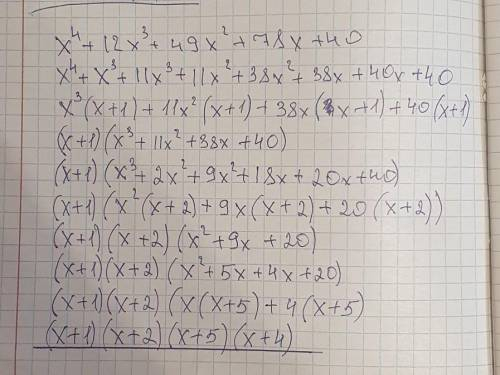 x⁴+12x³+49x²+78x+40
x⁴+x³+11x³+11x²+38x²+38x+40x+40
x³(x+1)+11x²(x+1)+38x(x+1)+40(x+1)
(x+1)(x³+11x²+38x+40)
(x+1)(x³+2x²+9x²+18x+20x+40)
(x+1)(x²(x+2)+9x(x+2)+20(x+2))
(x+1)(x+2)(x²+9x+20)
(x+1)(x+2)(x²+5x+4x+20)
(x+1)(x+2)(x(x+5)+4(x+5)
(x+1)(x+2)(x+5)(x+4)